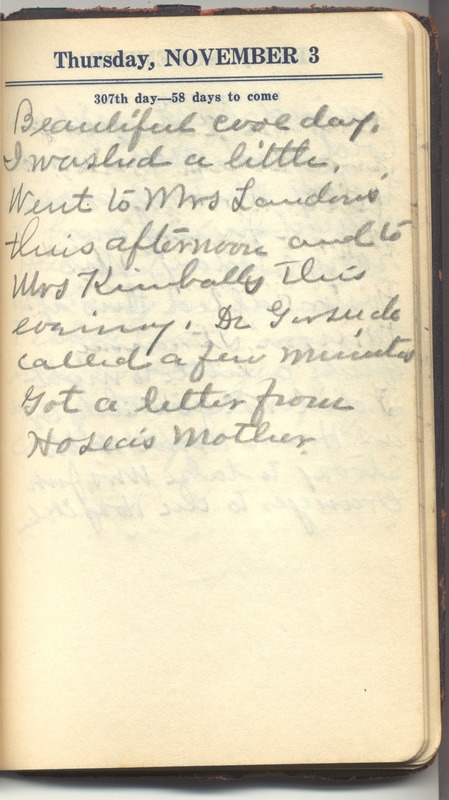 Thursday, NOVEMBER 3
307th day—58 days to come
Beautiful cool day.
I washed a little.
Went to Mrs Landons
this afternoon and to
Mrs Kimballs this
evening. Dr
called a few minutes
Got a letter from
Hosea's Mother